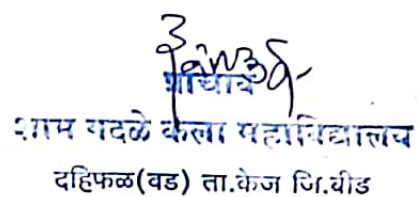 प्राचार्य
शाम गदळे कला महाविद्यालय
दहिफळ(वड) ता.केज जि.बीड